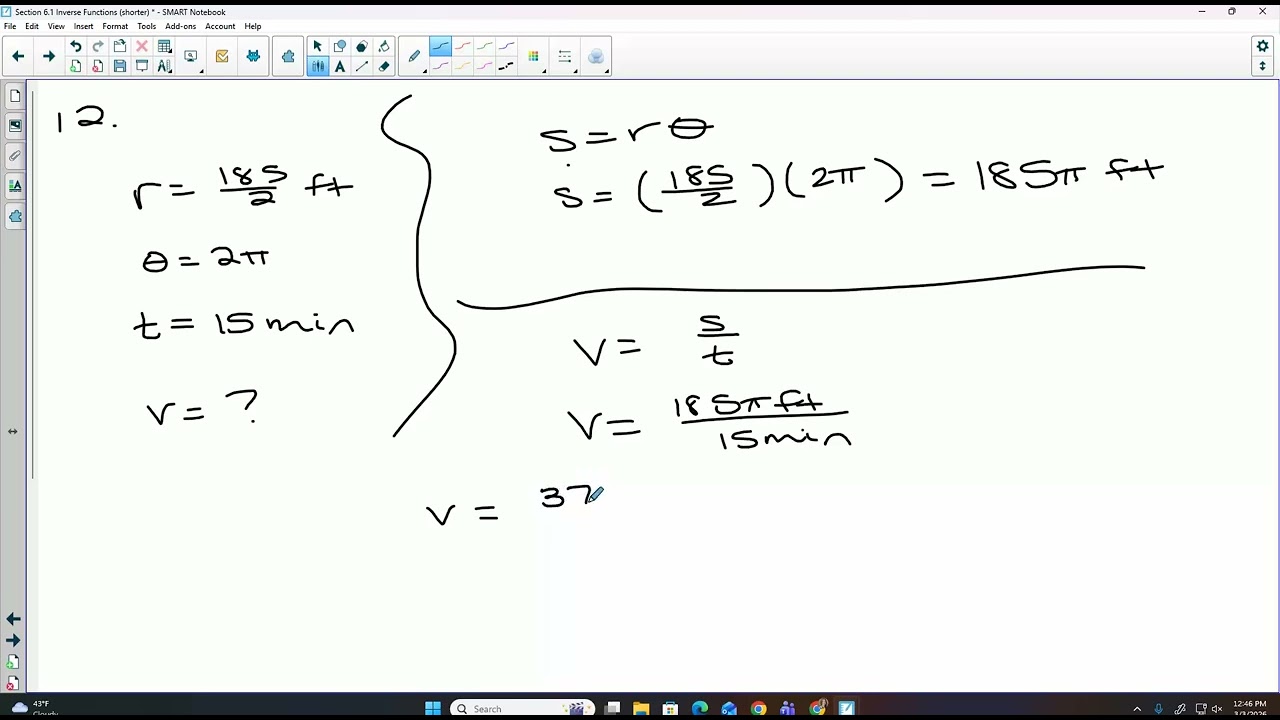 Section 6.1 Inverse Functions (shorter) * - SMART Notebook
File Edit View Insert Format Tools Add-ons Account Help
12.
r = 185/2 ft
θ = 2π
t = 15 min
v = ?
s = rθ
s = (185/2)(2π) = 185π ft
v = s/t
v = 185π ft/15 min
v = 37
43°F
Cloudy
Search
12:46 PM
3/3/2026